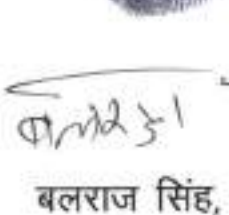 बलराज सिंह,